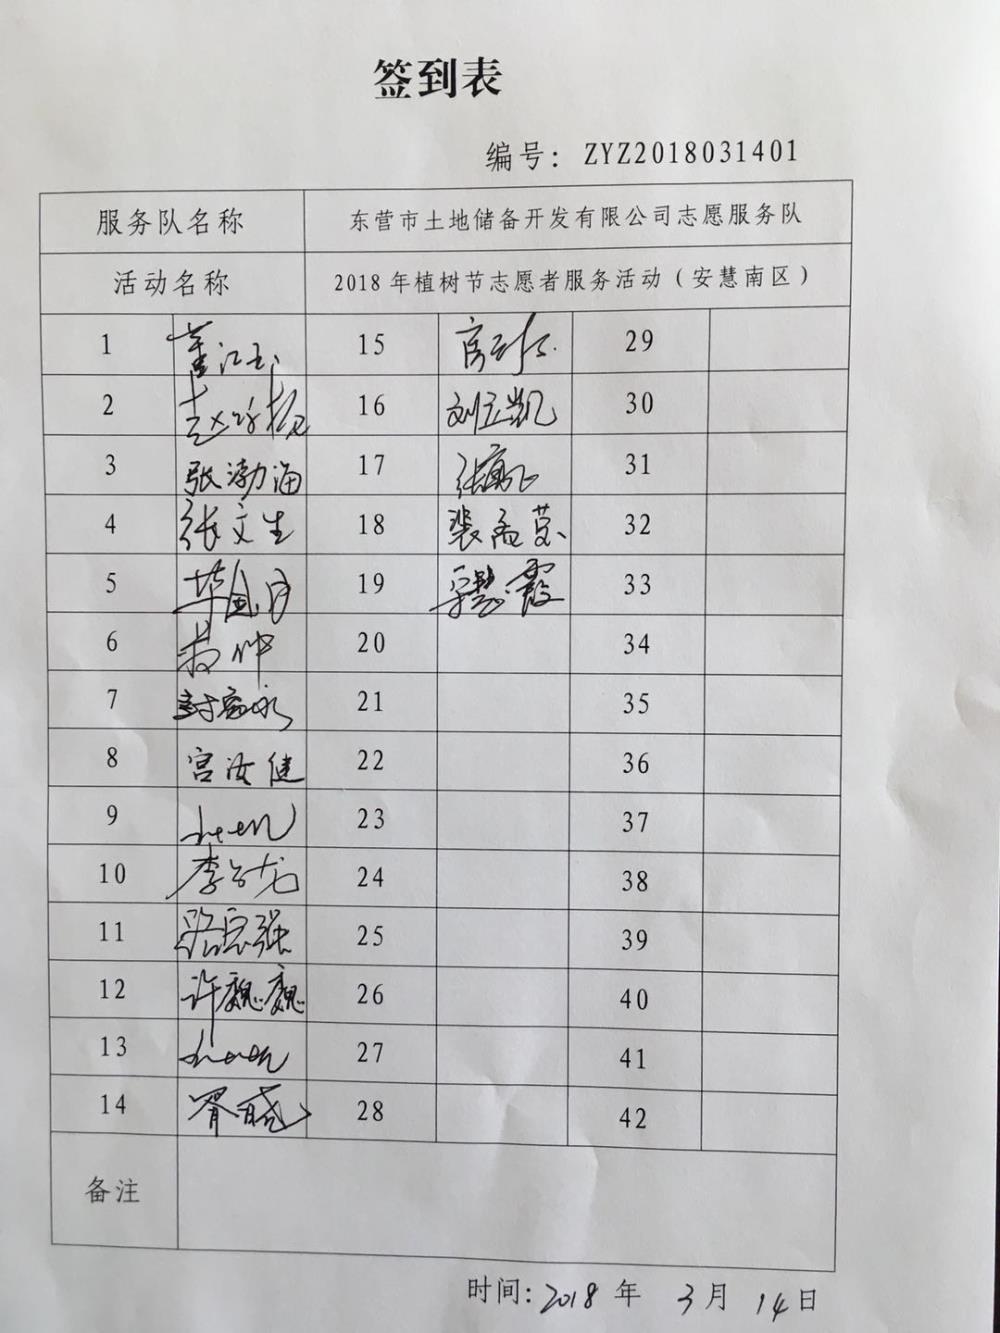 签到表
编号：ZYZ2018031401
服务队名称 东营市土地储备开发有限公司志愿服务队
活动名称 2018年植树节志愿者服务活动（安慧南区）
1 董江玉 15 29
2 赵 16 刘立凯 30
3 张渤海 17 张 31
4 张文生 18 裴孟莹 32
5 19 霞 33
6 20 34
7 21 35
8 宫汝健 22 36
9 23 37
10 李 24 38
11 路 强 25 39
12 许巍巍 26 40
13 27 41
14 胥 28 42
备注
时间：2018 年 3 月 14 日